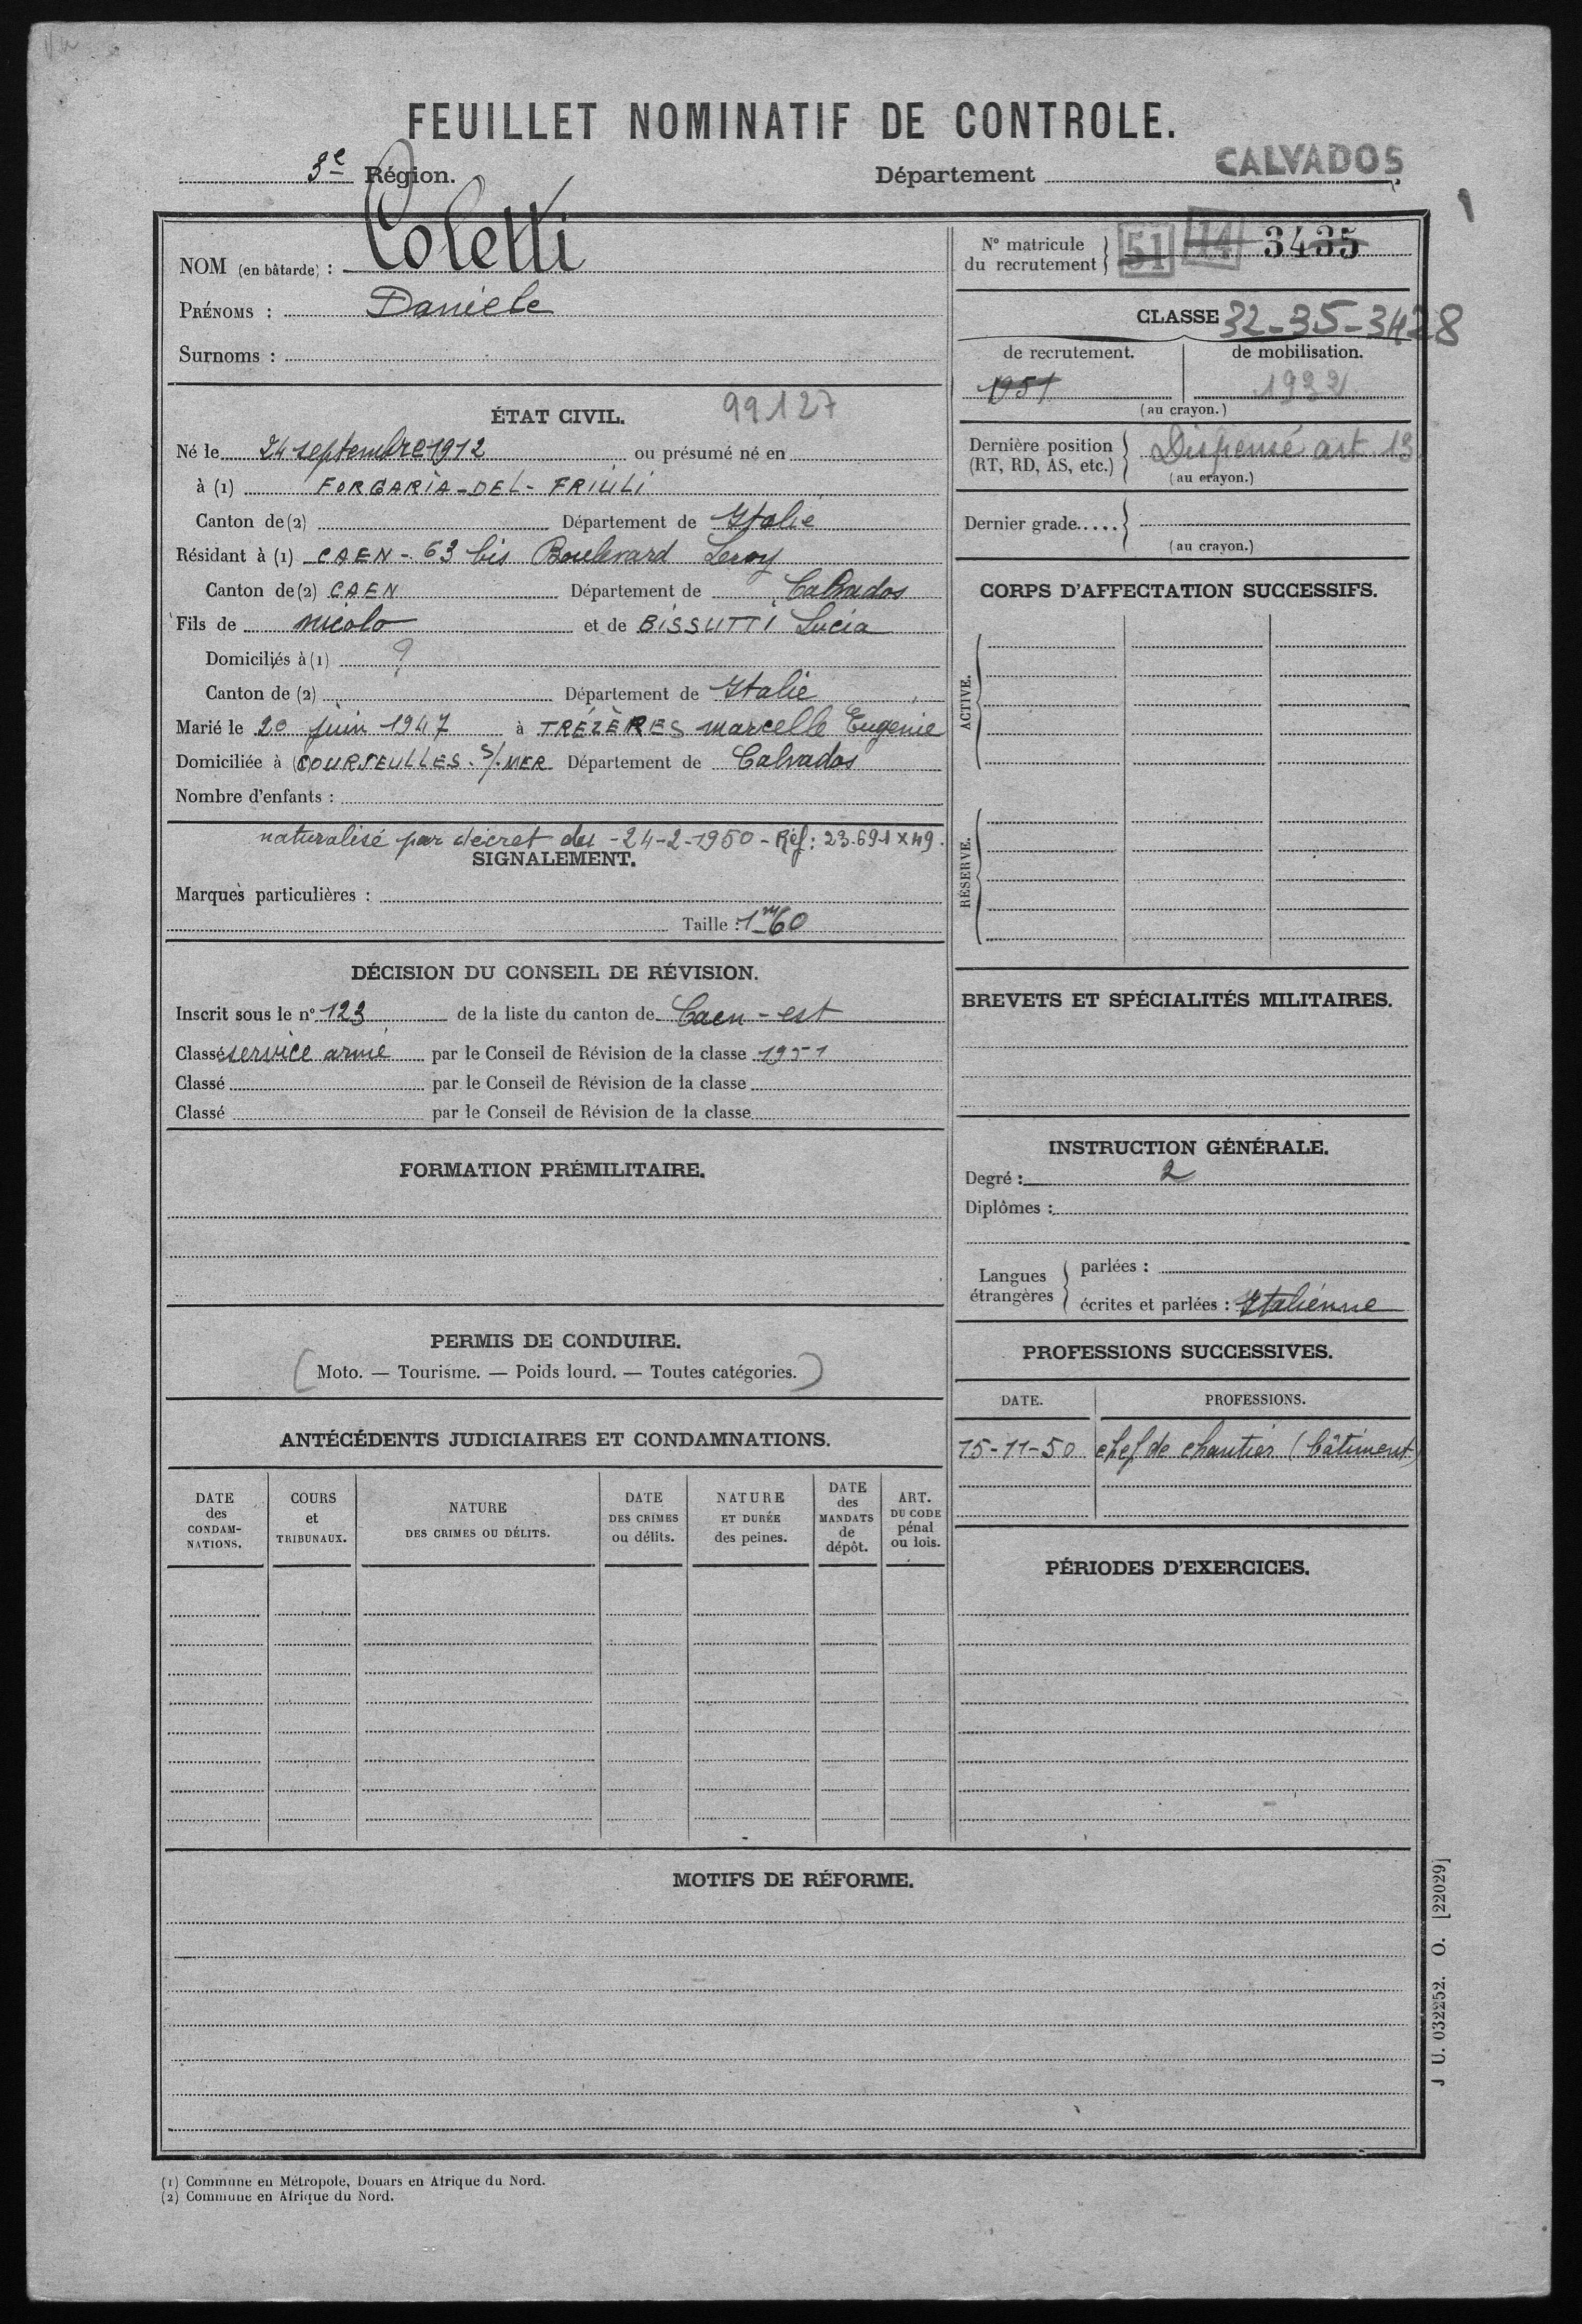 FEUILLET NOMINATIF DE CONTROLE.
3e Région.
Département CALVADOS
NOM (en bâtarde) : Coletti
PRÉNOMS : Daniele
Surnoms :
ÉTAT CIVIL. 99127
Né le 24 septembre 1912 ou présumé né en
à (1) FORGARIA-DEL-FRIULI
Canton de (2) Département de Italie
Résidant à (1) CAEN - 63 bis Boulevard Leroy
Canton de (2) CAEN Département de Calvados
Fils de Nicolo et de BISSUTTI Lucia
Domiciliés à (1) ?
Canton de (2) Département de Italie
Marié le 20 juin 1947 à TRÉZÈRES Marcelle Eugenie
Domiciliée à COURSEULLES S/ MER Département de Calvados
Nombre d'enfants :
naturalisé par décret du - 24-2-1950 - Réf : 23.691 X 49.
SIGNALEMENT.
Marques particulières :
Taille : 1m60
DÉCISION DU CONSEIL DE RÉVISION.
Inscrit sous le n° 123 de la liste du canton de Caen - est
Classé service armé par le Conseil de Révision de la classe 1951
Classé par le Conseil de Révision de la classe
Classé par le Conseil de Révision de la classe
FORMATION PRÉMILITAIRE.
PERMIS DE CONDUIRE.
(Moto. — Tourisme. — Poids lourd. — Toutes catégories.)
ANTÉCÉDENTS JUDICIAIRES ET CONDAMNATIONS.
DATE des CONDAM-NATIONS.
COURS et TRIBUNAUX.
NATURE DES CRIMES OU DÉLITS.
DATE DES CRIMES ou délits.
NATURE ET DURÉE des peines.
DATE des MANDATS de dépôt.
ART. DU CODE pénal ou lois.
N° matricule du recrutement 51 14 3435
CLASSE 32-35-3428
de recrutement. de mobilisation.
1951 1932
(au crayon.)
Dernière position (RT, RD, AS, etc.) Dispensé art. 13
(au crayon.)
Dernier grade.....
(au crayon.)
CORPS D'AFFECTATION SUCCESSIFS.
ACTIVE.
RÉSERVE.
BREVETS ET SPÉCIALITÉS MILITAIRES.
INSTRUCTION GÉNÉRALE.
Degré : 2
Diplômes :
Langues étrangères
parlées :
écrites et parlées : Italienne
PROFESSIONS SUCCESSIVES.
DATE. PROFESSIONS.
15-11-50 chef de chantier (bâtiment)
PÉRIODES D'EXERCICES.
MOTIFS DE RÉFORME.
J U. 032252. O. [22029]
(1) Commune en Métropole, Douars en Afrique du Nord.
(2) Commune en Afrique du Nord.